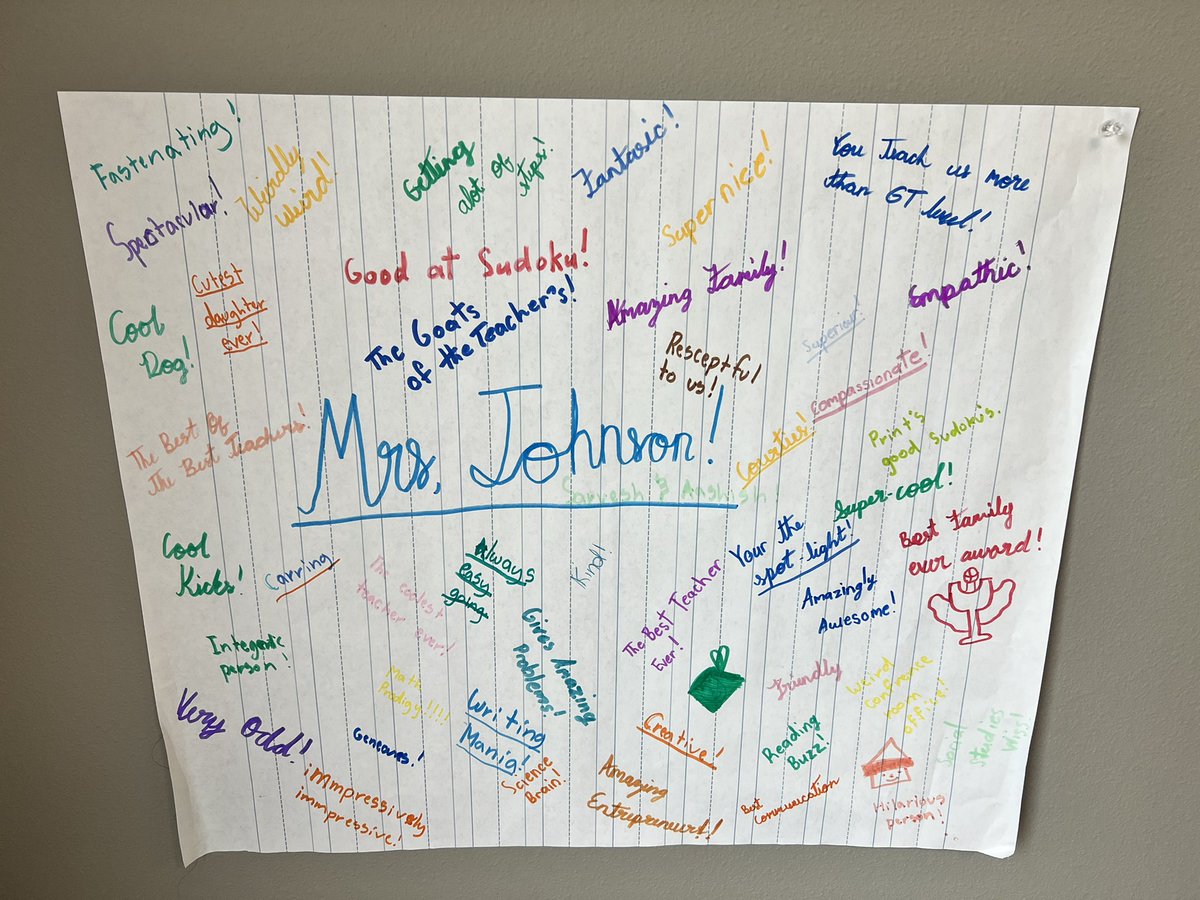 Fastenating!
Weirdly
Weird!
Getting
alot of
steps!
Fantasic!
Super nice!
You Teach us more
than GT level!
Spectarular!
Good at Sudoku!
Cutest
daughter
ever!
Cool
Dog!
The Goats
of the Teacher's!
Amazing Family!
Empathic!
Superiour!
Resceptful
to us!
Compassionate!
The Best Of
the Best Teachers!
Mrs. Johnson!
Sarvesh & Anshish!
Courties!
Print's
good Sudoku's.
Super-cool!
Cool
Kicks!
Carring
The coolest
teacher ever!
Always
easy
going.
Kind!
Your the
spot-light!
Best Family
ever award!
Amazingly
Awesome!
The Best Teacher
Ever!
Integeretic
person!
Gives Amazing
Problems!
Math
Prodigy!!!!
Friendly
Weird
Conference
room
office!
Very Odd!
Geneours!
Writing
Mania!
Creative!
Reading
Buzz!
Social
studies
Wiss!
immpressively
immpressive!
Science
Brain!
Amazing
Entrepreneurt!
Best
Communication
Hilarious
person!